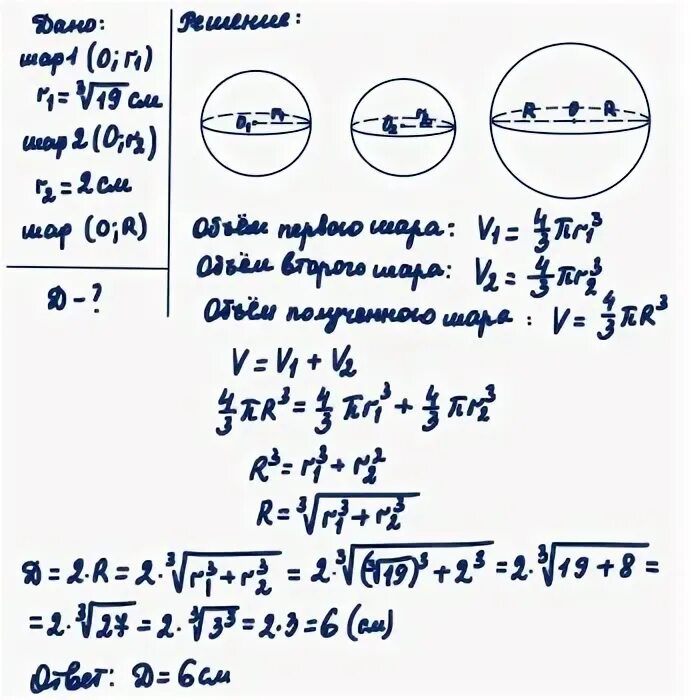 Дано:
шар 1 (O; r₁)
r₁ = ∛19 см
шар 2 (O; r₂)
r₂ = 2 см
шар (O; R)
D - ?
Решение:
O₁ r₁
O₂ r₂
R O R
Объём первого шара: V₁ = 4/3 πr₁³
Объём второго шара: V₂ = 4/3 πr₂³
Объём полученного шара: V = 4/3 πR³
V = V₁ + V₂
4/3 πR³ = 4/3 πr₁³ + 4/3 πr₂³
R³ = r₁³ + r₂²
R = ∛(r₁³ + r₂³)
D = 2·R = 2·∛(r₁³ + r₂³) = 2·∛((∛19)³ + 2³) = 2·∛(19 + 8) =
= 2·∛27 = 2·∛3³ = 2·3 = 6 (см)
Ответ: D = 6 см